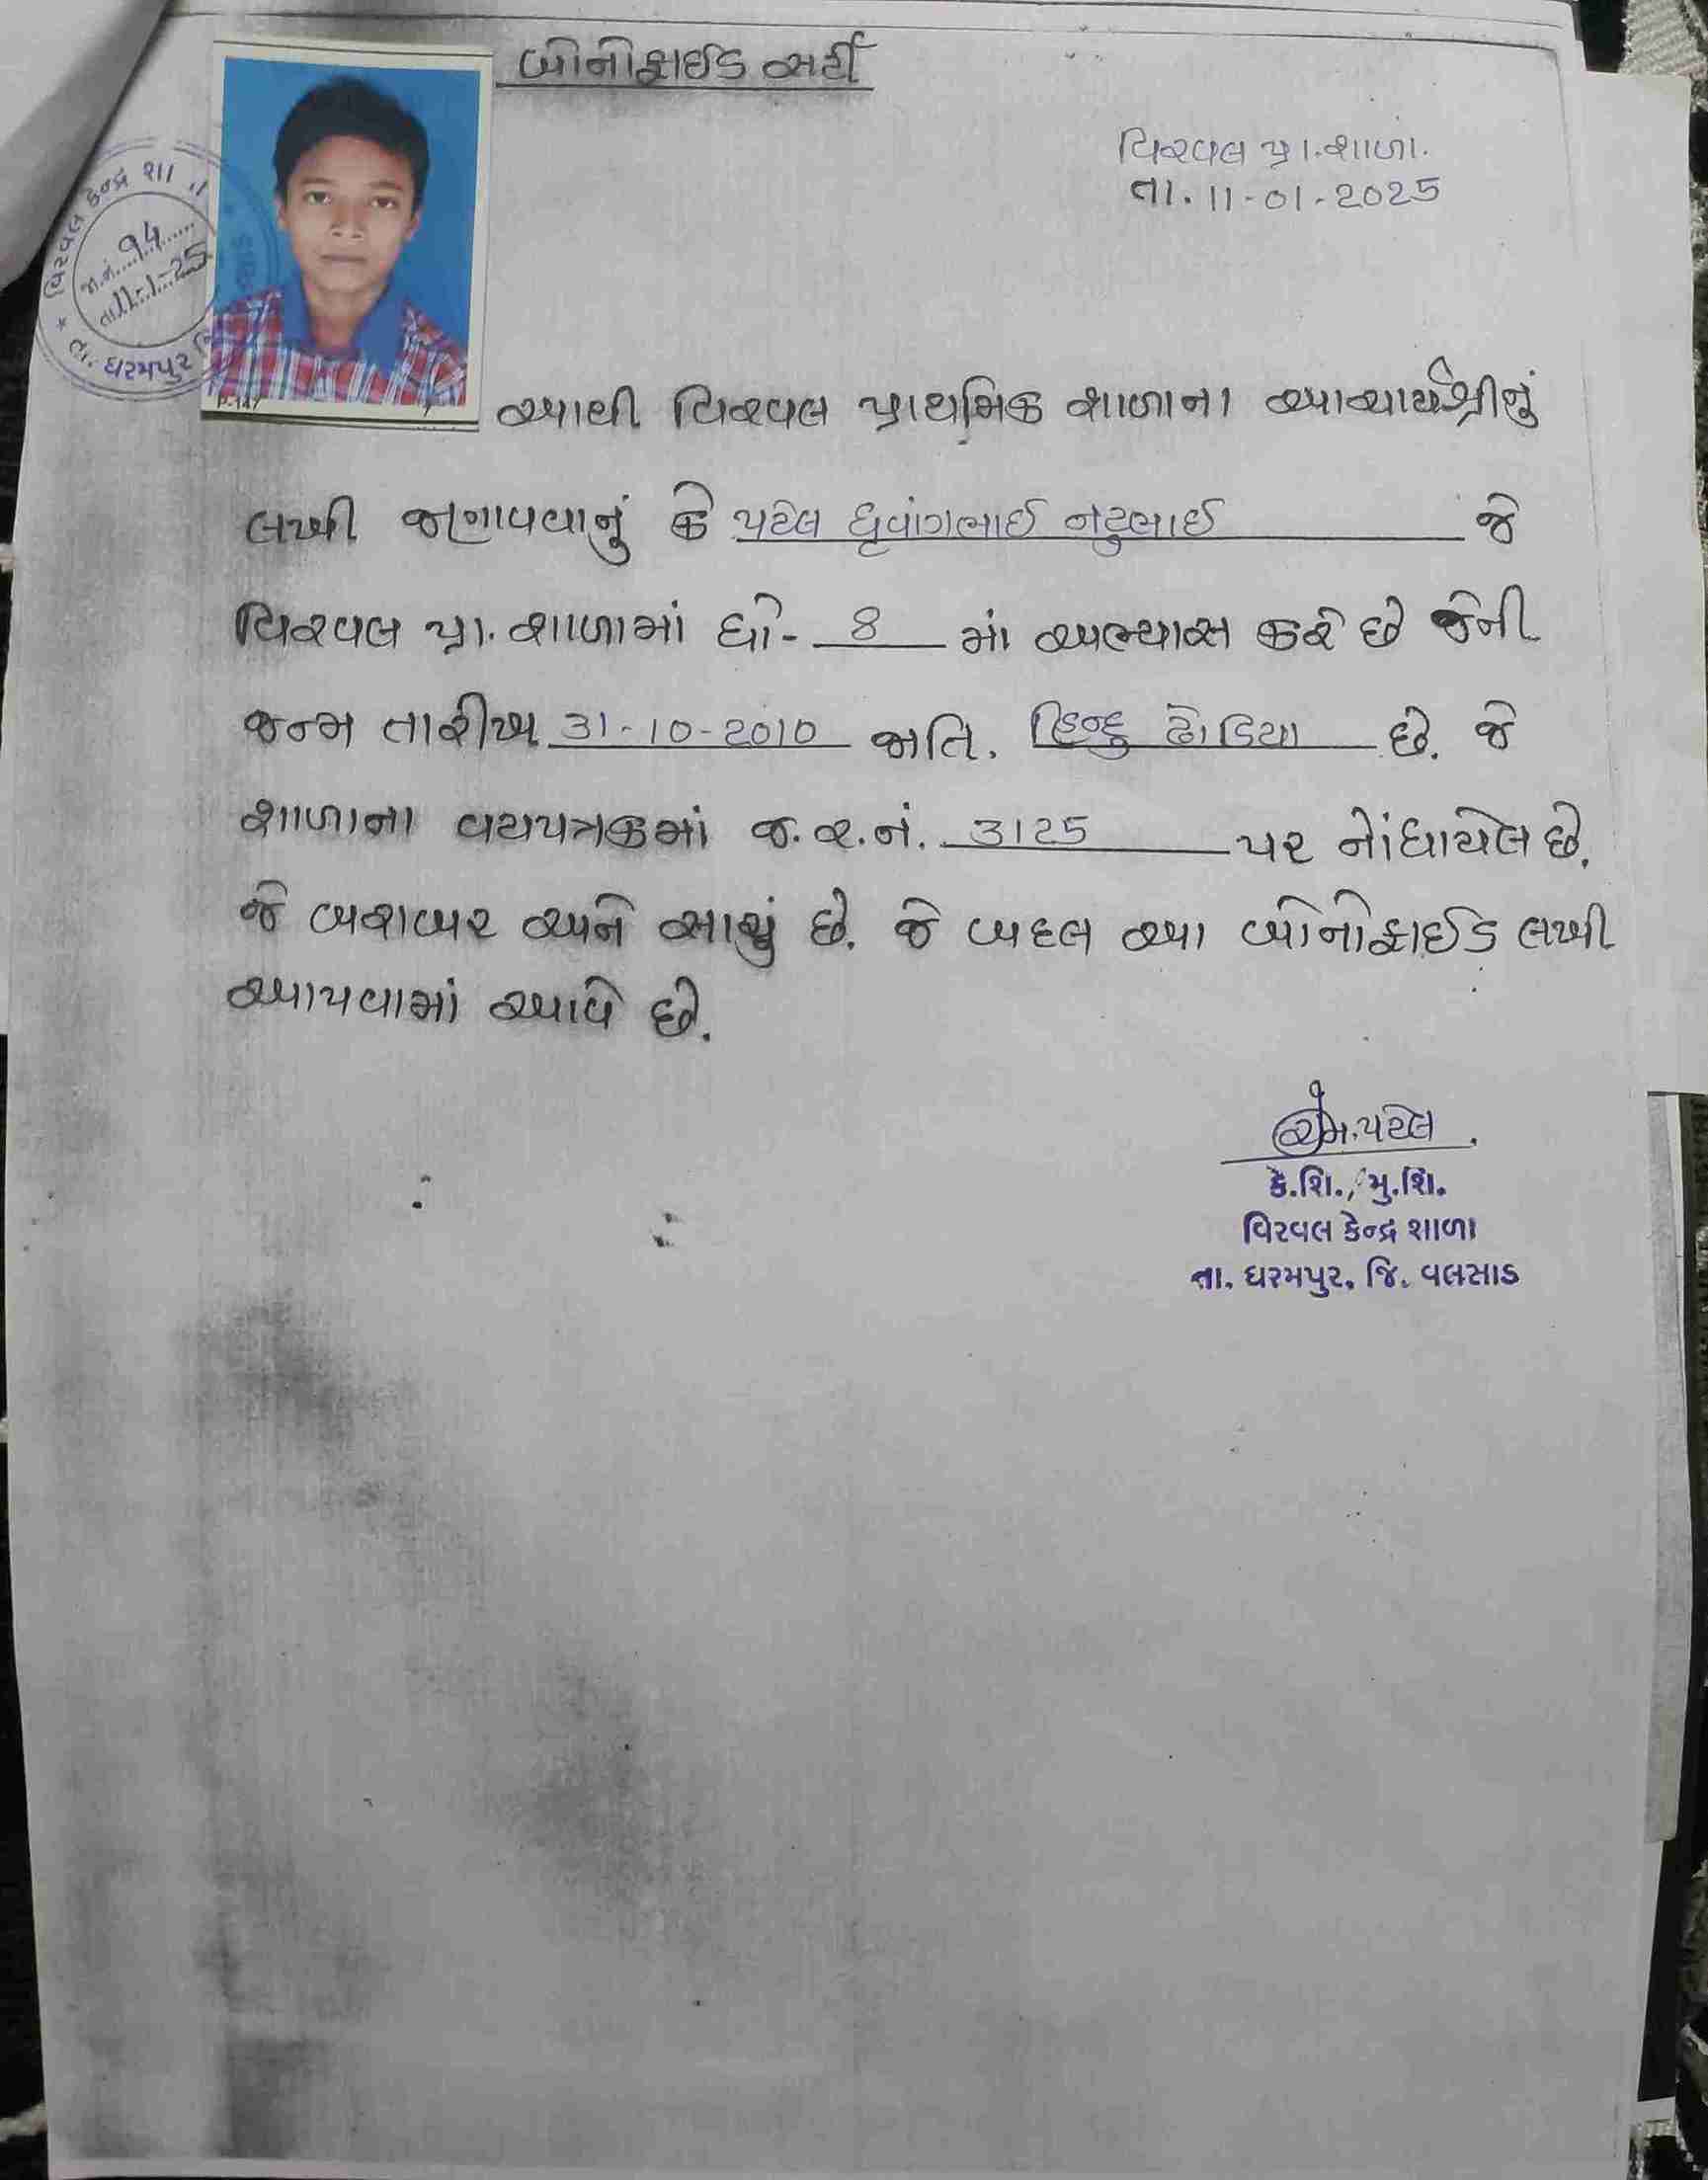 બોનોફાઈડ સર્ટી
વિરવલ પ્રા.શાળા.
તા. 11-01-2025
વિરવલ કેન્દ્ર શા
જા.નં. 94
તા. 11-1-25
તા. ધરમપુર
આથી વિરવલ પ્રાથમિક શાળાના આચાર્યશ્રીનું
લખી જણાવવાનું કે પટેલ ધૃવાંગભાઈ નટુભાઈ જે
વિરવલ પ્રા. શાળામાં ધો- 8 માં અભ્યાસ કરે છે જેની
જન્મ તારીખ 31-10-2010 જાતિ. હિન્દુ ઢોડિયા છે. જે
શાળાના વયપત્રકમાં જ.ર.નં. 3125 પર નોંધાયેલ છે.
જે બરાબર અને સાચું છે. જે બદલ આ બોનોફાઈડ લખી
આપવામાં આવે છે.
એમ.પટેલ
કે.શિ./મુ.શિ.
વિરવલ કેન્દ્ર શાળા
તા. ધરમપુર, જિ. વલસાડ